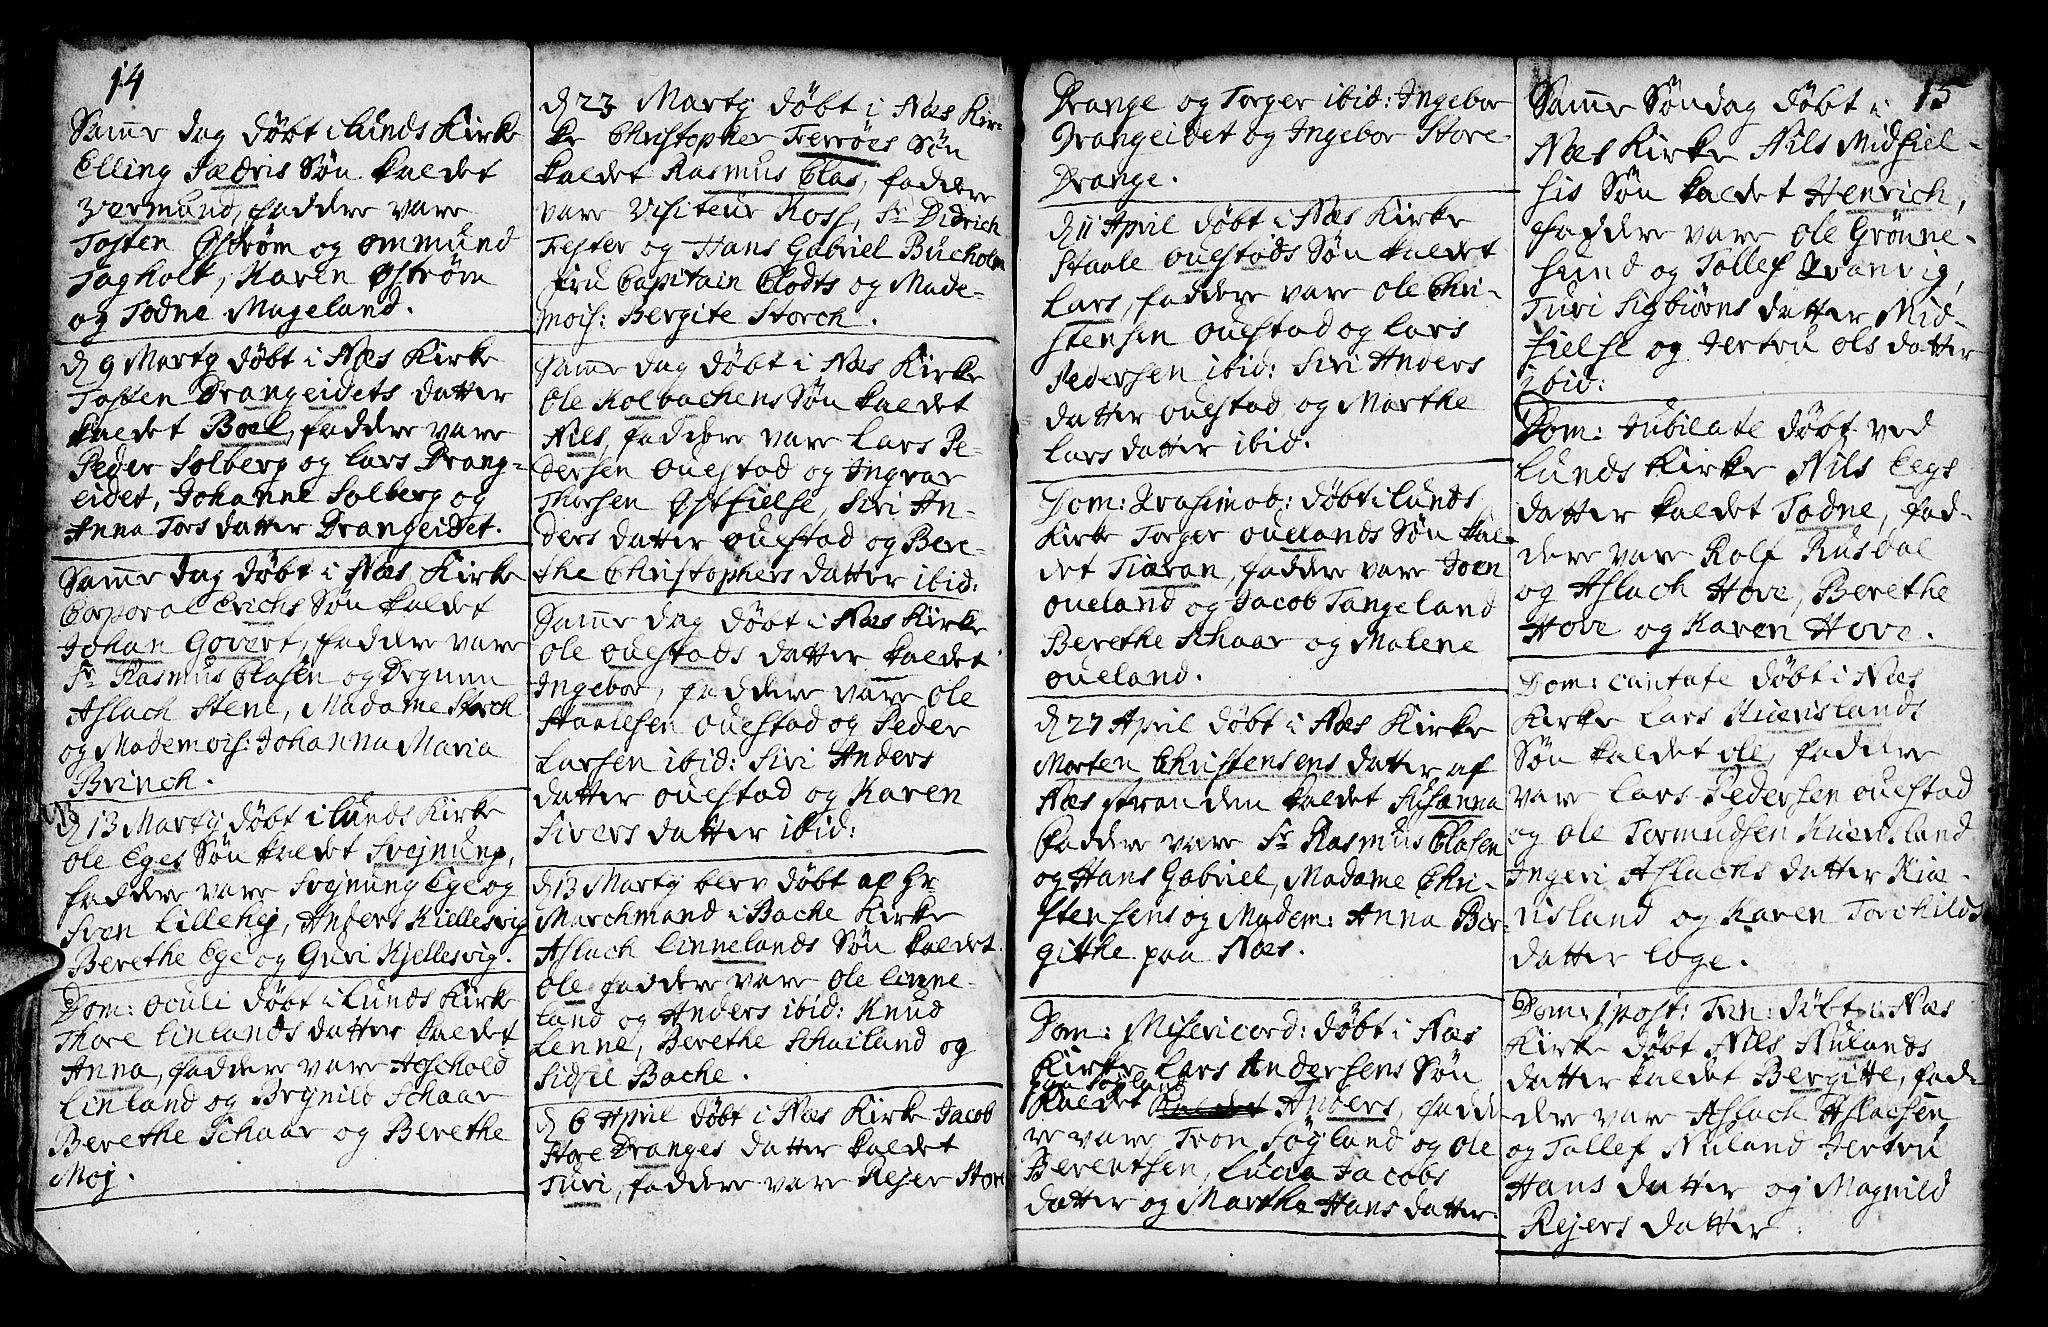 14
Samme dag døbt i Lunds Kirke
Elling Sædvis Søn kaldet
Vermund, faddere vare
Tosten Østrøm og Ommund
Tagholt, Karen Østrøm
og Todne Mageland.
d 9 Martij døbt i Næs Kirke
Tosten Drangeidets datter
kaldet Boel, faddere vare
Peder Solberg og Lars Drang-
eidet, Johanne Solberg og
Anna Tors datter Drangeidet.
Samme dag døbt i Næs Kirke
Corporal Erichs Søn kaldet
Johan Govert, faddere vare
Sr Rasmus Clasen og Degnen
Aslach Stene, Madame Storch
og Mademois: Johanna Maria
Brinch.
d 13 Martij døbt i Lunds Kirke
Ole Eges Søn kaldet Svejnung,
faddere vare Svejnung Ege og
Sven Lillehej, Anders Kiellesvig
Berethe Ege og Guri Kjellesvig.
Dom: Oculi døbt i Lunds Kirke
Thore Linlands datter kaldet
Anna, faddere vare Aschold
Linland og Brynild Schaar
Berethe Schaar og Berethe
Moj.
d 23 Martij døbt i Næs Kir-
ke Christopher Ferrøes Søn
kaldet Rasmus Clas, faddere
vare Visiteur Ross, Sr Didrich
Fester og Hans Gabriel Bucholm
Fru Capitain Clodts og Made-
mois: Bergite Storch.
Samme dag døbt i Næs Kirke
Ole Kolbachens Søn kaldet
Nils, faddere vare Lars Pe-
dersen Ouestad og Ingvar
Thorsen Østfielse, Siri An-
ders datter Ouestad og Bere-
the Christophers datter ibid:
Samme dag døbt i Næs Kirke
Ole Ouestads datter kaldet
Ingebor, faddere vare Ole
Staalesen Ouestad og Peder
Larsen ibid: Siri Anders
datter Ouestad og Karen
Sivers datter ibid:
d 13 Martij blev døbt af Hr
Marchmand i Bache Kirke
Aslach Linnelands Søn kaldet
Ole faddere vare Ole Linne-
land og Anders ibid: Knud
Lenne, Berethe Schailand og
Sidsel Bache.
d 6 April døbt i Næs Kirke Jacob
Store Dranges datter kaldet
Turi, faddere vare Rejer Store
Drange og Torger ibid: Ingebor
Drangeidet og Ingebor Store-
Drange.
d 11 April døbt i Næs Kirke
Staale Ouestads Søn kaldet
Lars, faddere vare Ole Chri-
stensen Ouestad og Lars
Pedersen ibid: Siri Anders
datter Ouestad og Marthe
Lars datter ibid.
Dom: Qvasimod: døbt i Lunds
Kirke Torger Ouelands Søn kal-
det Tiøran, faddere vare Joen
Oueland og Jacob Tangeland
Berethe Schaar og Malene
Oueland.
d 27 April døbt i Næs Kirke
Morten Christensens datter af
Næs stranden kaldet Susanna
faddere vare Sr Rasmus Clasen
og Hans Gabriel, Madame Chri-
stensens og Madem: Anna Ber-
githe paa Næs.
Dom: Misericord: døbt i Næs
Kirke Lars Andersens Søn
paa Søjland
kaldet Anders, fadde
re vare Tron Søjland og Ole
Berentsen, Lucia Jacobs
datter og Marthe Hans datter.
15
Samme Søndag døbt i
Næs Kirke Nils Midfiel-
sis Søn kaldet Henrich,
faddere vare Ole Grønne-
sund og Tollef Qvanvig,
Turi Sigbiørns datter Mid-
fielse og Jertru Ols datter
ibid:
Dom: Jubilate døbt ved
Lunds Kirke Nils Eegs
datter kaldet Todne, fad-
dere vare Rolf Rusdal
og Aslach Hove, Berethe
Hove og Karen Hove.
Dom: Cantate døbt i Næs
Kirke Lars Kuevislands
Søn kaldet Ole, faddere
vare Lars Pedersen Ouestad
og Ole Tormudsen Kuevisland
Ingeri Aslachs datter Kue-
visland og Karen Torchilds
datter Loge.
Dom: 1 post: Trin: døbt i Næs
Kirke døbt Nils Nulands
datter kaldet Bergitte, fad-
dere vare Aslach Aslacsen
og Tollef Nuland Jertru
Hans datter og Magnild
Rejers datter.